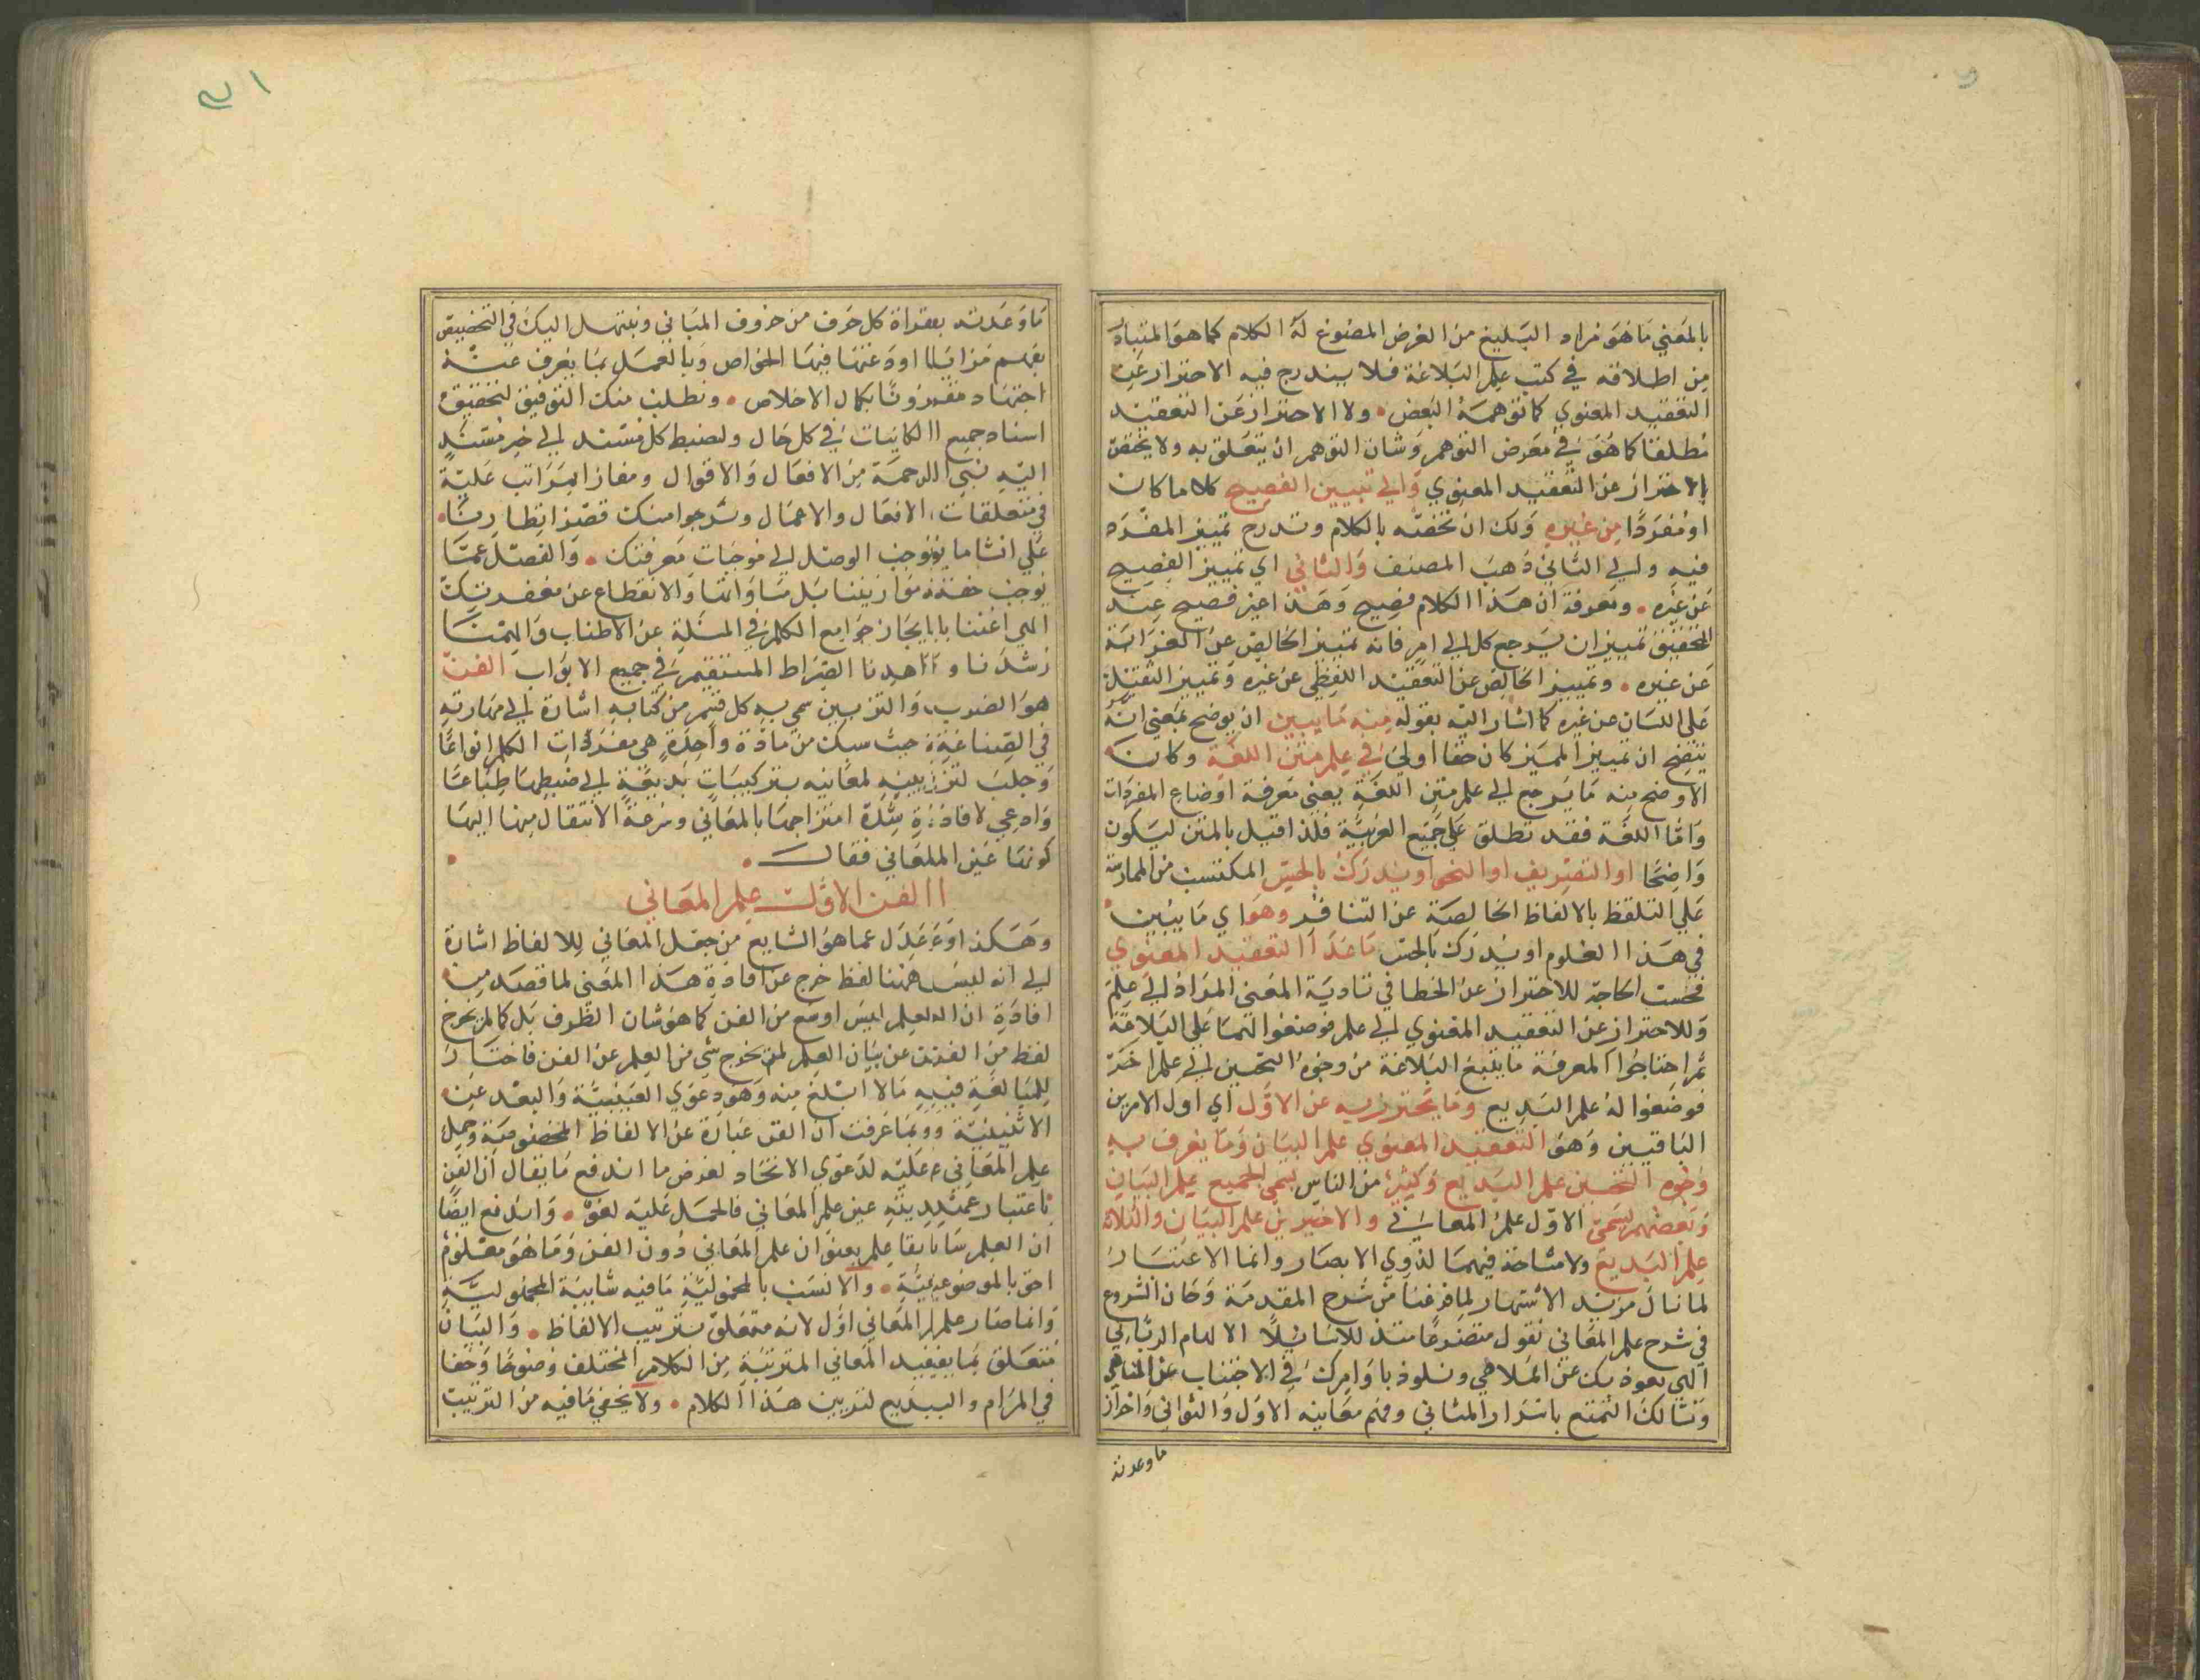 بالمعني ما هو مراد البليغ من الغرض المصنوع له الكلام كما هو المتبادر
من اطلاقه في كتب علم البلاغة فلا يندرج فيه الاحتراز عن
التعقيد المعنوي كما توهمه البعض ولا الاحتراز عن التعقيد
مطلقا كما هو في معرض التوهم وشان التوهم ان يتعلق به ولا يختص
بالاحتراز عن التعقيد المعنوي والي تبيين الفصيح كلاما كان
او مفردا من غيره ولك ان تخصه بالكلام وتدرج تمييز المفرد
فيه والي الثاني ذهب المصنف والثاني اي تمييز الفصيح
عن غيره ومعرفة ان هذا الكلام فصيح وهذا غير فصيح عند
التحقيق تمييزان يرجع كل الي امر فانه تمييز الخالص عن الغرابة
عن غيره وتمييز الخالص عن التعقيد اللفظي عن غيره وتمييز الثقيل
علي اللسان عن غيره كما اشار اليه بقوله منه ما يبين ان يوضح بمعني انه
يتضح ان تمييز المميز كان حقا اولي في علم متن اللغة وكان
الاوضح منه ما يرجع الي علم متن اللغة يعني معرفة اوضاع المفردات
واما اللغة فقد تطلق علي جميع العربية فلذا قيل بالمتن ليكون
واضحا او التصريف او النحو او يدرك بالحس المكتسب من الممارسة
علي التلفظ بالالفاظ الخالصة عن التنافر وهو اي ما يبين
في هذا العلوم او يدرك بالحس ما عدا التعقيد المعنوي
فمست الحاجة للاحتراز عن الخطا في تادية المعني المراد الي علم
وللاحتراز عن التعقيد المعنوي الي علم فوضعوا لهما علمي البلاغة
ثم احتاجوا لمعرفة ما يتبع البلاغة من وجوه التحسين الي علم اخر
فوضعوا له علم البديع وما يحترز به عن الاول اي اول الامرين
الباقيين وهو التعقيد المعنوي علم البيان وما يعرف به
وجوه التحسين علم البديع وكثير من الناس يسمي الجميع علم البيان
وبعضهم يسمي الاول علم المعاني والاخيرين علم البيان والثلاثة
علم البديع ولا مشاحة فيهما لذوي الابصار وانما الاعتبار
لما نال مزيد الاشتهار لما فرغنا من شرح المقدمة وحان الشروع
في شرح علم المعاني نقول متضرعا سائلا الالهام الرباني
الهي نعوذ بك عن الملاهي ونلوذ باوامرك في الاجتناب عن المناهي
ونسالك التمتع باسرار المثاني وفهم معانيه الاول والثواني واحراز
ما وعدته
ما وعدته بقراة كل حرف من حروف المباني ونبتهل اليك في التخصيص
بفهم مزايا اودعتها فيها الخواص وبالعمل بما يعرف عنه
اجتهاد مقرونا بكمال الاخلاص ونطلب منك التوفيق لتحقيق
اسناد جميع الكاينات في كل حال ولضبط كل مسند الي خير مسند
اليه نبي الرحمة من الافعال والاقوال ومفاز المراتب علية
في متعلقات الافعال والاعمال ونرجو امنك قصر انظارنا
علي انشا ما يوجب الوصل الي موجبات معرفتك والفصل عما
يوجب خفة موازيننا بل مساواتنا والانقطاع عن مغفرتك
الهي اغننا بايجاز جوامع الكلم في المسلة عن الاطناب والهمنا
رشدنا واهدنا الصراط المستقيم في جميع الابواب الفن
هو الضرب والتزيين سمي به كل قسم من كتابه اشارة الي مهارته
في الصناعة حيث سبك من مادة واحدة هي مفردات الكلم انواعا
وجلب لتزيينه لمعانيه بتركيبات بديعة الي ضبطها طباعا
وادعي لافادة شدة امتزاجها بالمعاني وسرعة الانتقال منها اليها
كونها عين المعاني فقال
الفن الاول علم المعاني
وهكذا وعدل عما هو الشايع من جعل المعاني للالفاظ اشارة
الي انه ليس ههنا لفظ خرج عن افادة هذا المعني لما قصد من
افادة ان العلم ليس اوسع من الفن كما هو شان الظرف بل كما لم يخرج
لفظ من الفن عن بيان العلم لم يخرج شي من العلم عن الفن فاختار
للمبالغة فيه ما لا ابلغ منه وهو دعوي العينية والبعد عن
الاثنينية وبما عرفت ان الفن عبارة عن الالفاظ المخصوصة وحمل
علم المعاني عليه لدعوي الاتحاد لغرض ما اندفع ما يقال ان الفن
باعتبار عينه عين علم المعاني فالحمل عليه لغو واندفع ايضا
ان العلم سابقا علم بعنوان علم المعاني دون الفن وما هو معلوم
احق بالموضوعية والانسب بالمحمولية ما فيه شايبة المجهولية
وانما صار علم المعاني اول لانه متعلق بترتيب الالفاظ والبيان
متعلق بما يفيد المعاني المترتبة من الكلام المختلف وضوحا وخفا
في المرام والبديع لتزيين هذا الكلام ولا يخفي ما فيه من الترتيب